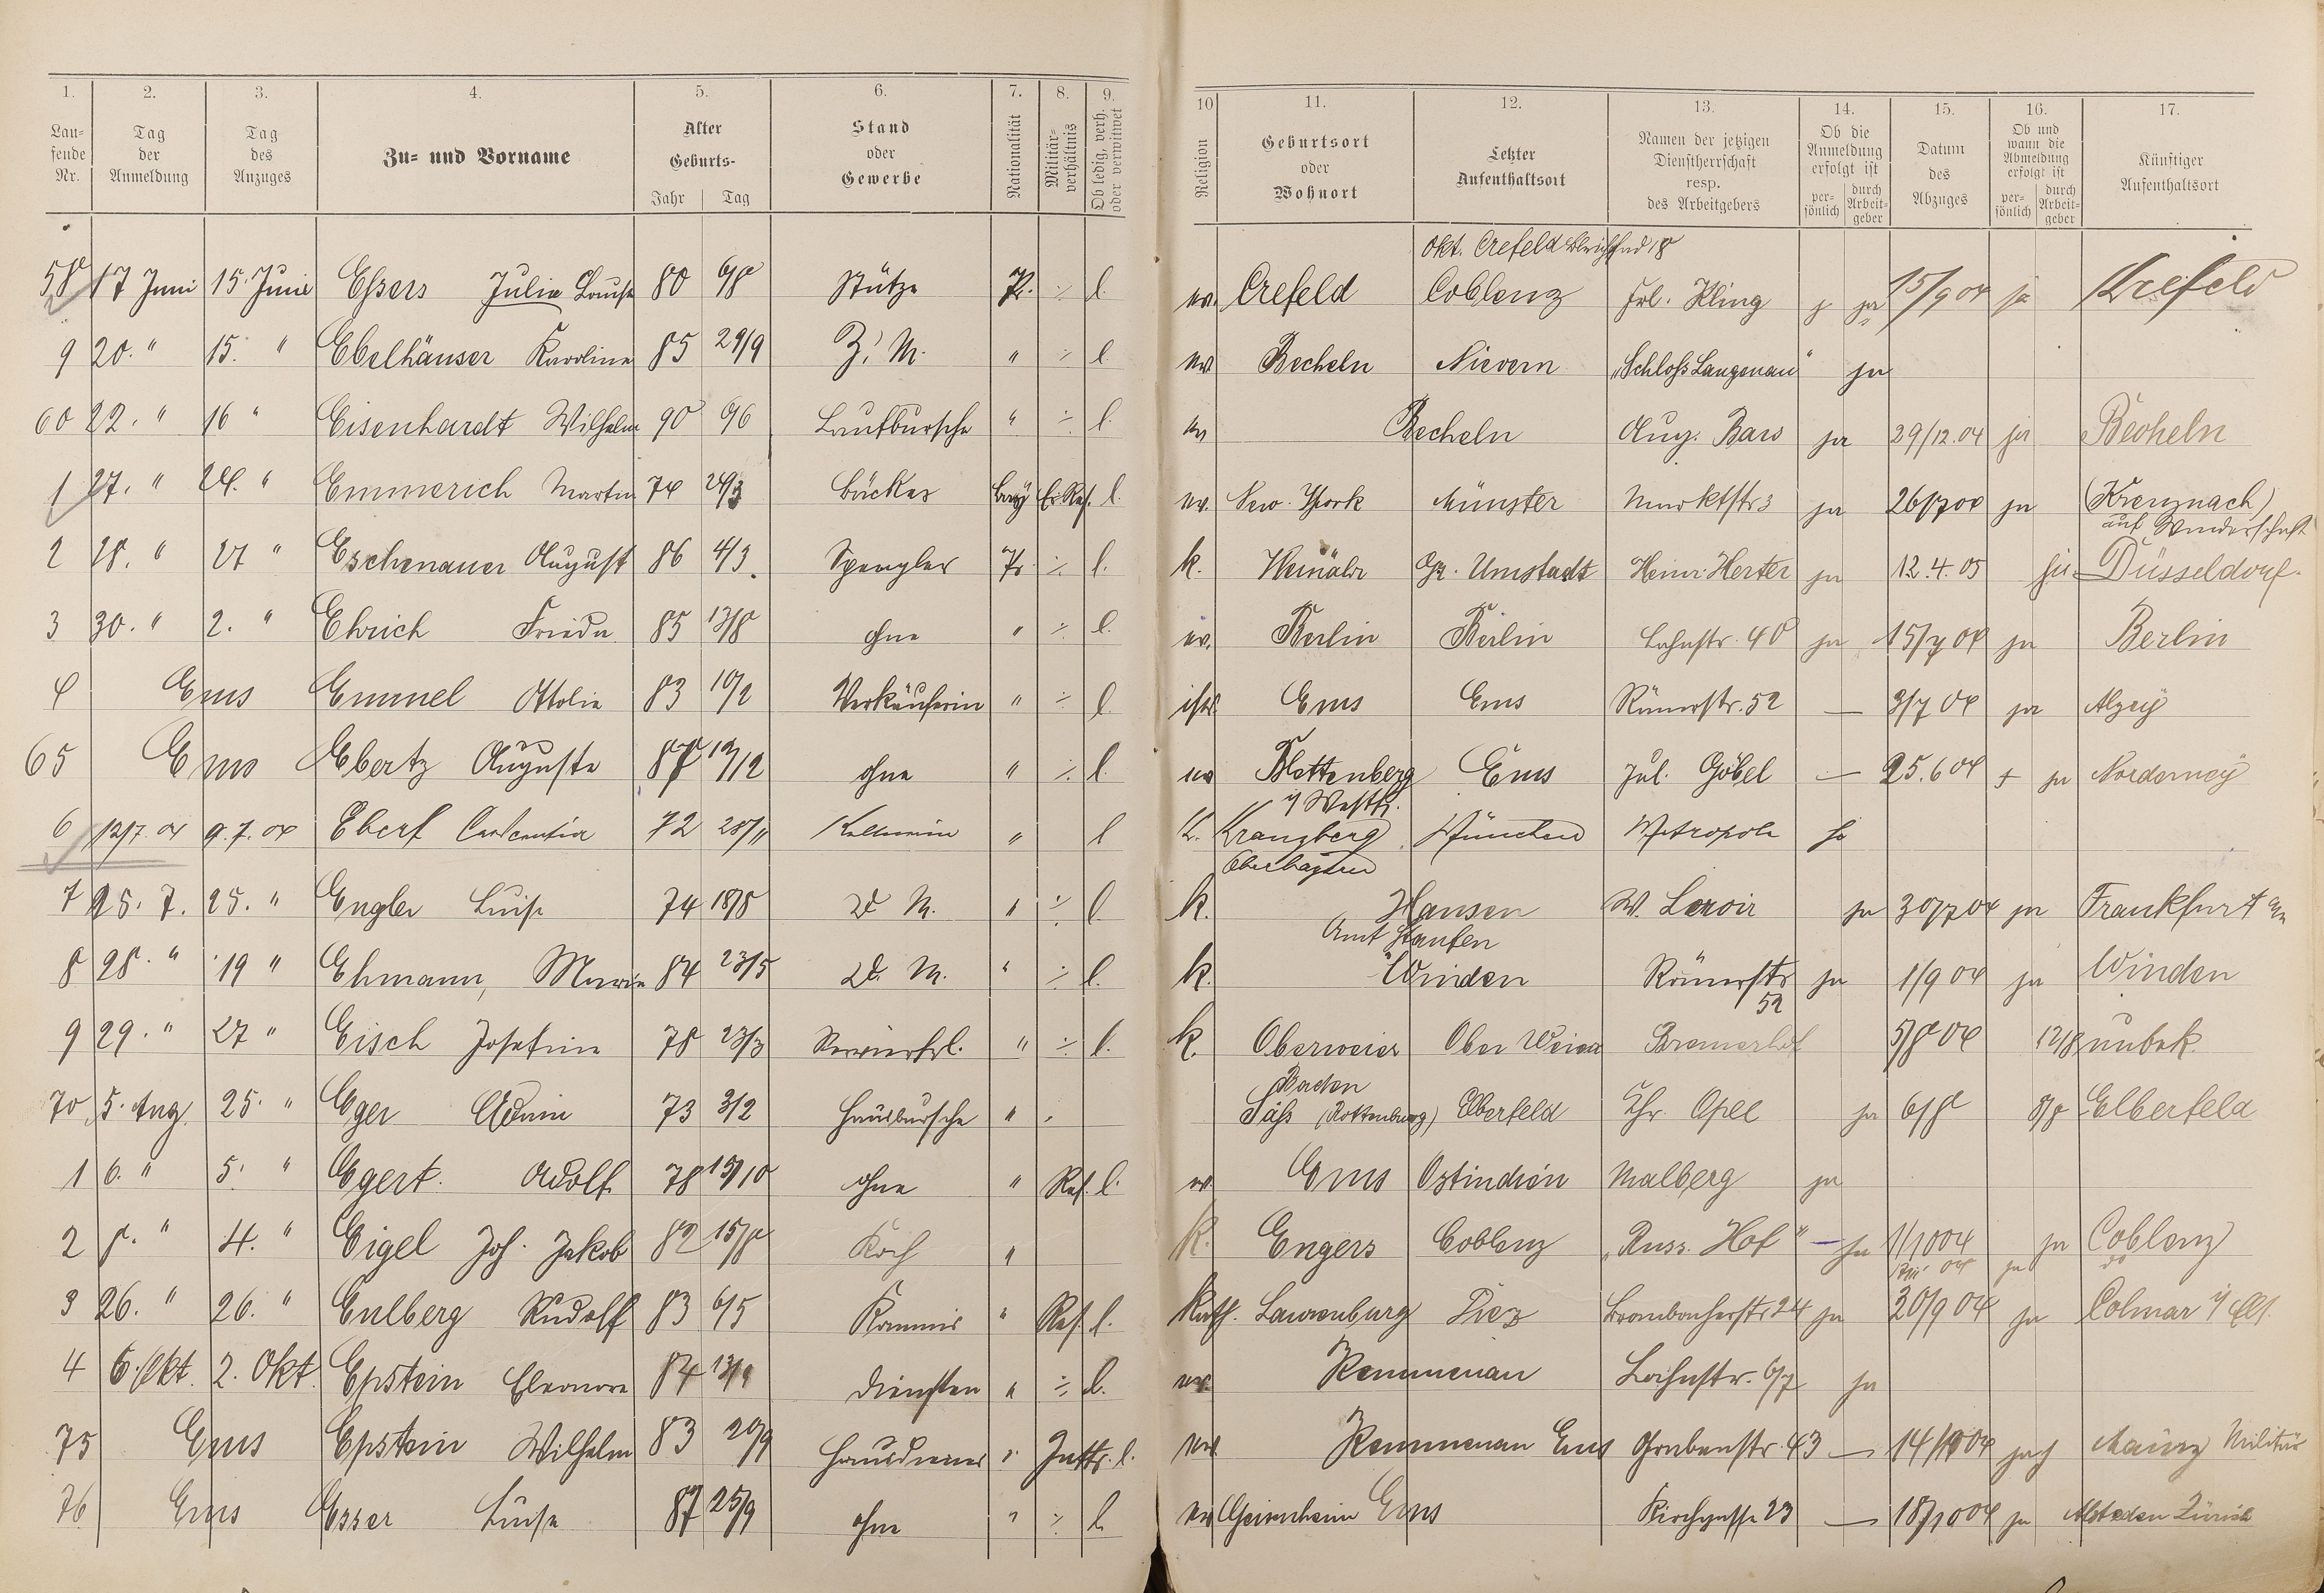 1. 2. 3. 4. 5. 6. 7. 8. 9. 10 11. 12. 13. 14. 15. 16. 17.
Lau-
fende
Nr.
Tag
der
Anmeldung
Tag
des
Anzuges
Zu- und Vorname
Alter
Geburts-
Jahr Tag
Stand
oder
Gewerbe
Nationalität
Militär-
verhältnis
Ob ledig, verh.
oder verwitwet
Religion
Geburtsort
oder
Wohnort
Letzter
Aufenthaltsort
Namen der jetzigen
Dienstherrschaft
resp.
des Arbeitgebers
Ob die
Anmeldung
erfolgt ist
per-
sönlich
durch
Arbeit-
geber
Datum
des
Abzuges
Ob und
wann die
Abmeldung
erfolgt ist
per-
sönlich
durch
Arbeit-
geber
Künftiger
Aufenthaltsort
Okt. Crefeld
58 17 Juni 15. Juni Essers Julie Louise 80 6/8 Stütze Pr. ÷ l. ev. Crefeld Coblenz Frl. Kling ja 15/9 04 ja Krefeld
9 20. " 15. " Ebelhäuser Karoline 85 29/9 Z. M. " ÷ l. ev. Becheln Nievern "Schloß Langenau" ja
60 22. " 16 " Eisenhardt Wilhelm 90 6/6 Laufbursche " ÷ l. ev Becheln Aug. Bars ja 29/12.04 ja Becheln
1 27. " 24. " Emmerich Martin 74 24/3 Bäcker bay Er. Res. l. ev. New-York Münster Marktstr 3 ja 26/7 04 ja (Kreuznach)
auf Wanderschaft
2 28. " 27 " Eschenauer August 86 4/3. Spengler Pr ÷ l. k. Gr. Umstadt Heinr. Herter ja 12.4.05 ja Düsseldorf.
3 30. " 2. " Ehrich Frieda 85 13/8 ohne " ÷ l. ev. Berlin Berlin Lahnstr. 40 ja 15/7 04 ja Berlin
4 Ems Emmel Ottolie 83 10/2 Verkäuferin " ÷ l. isr. Ems Ems Römerstr. 52 — 3/7 04 ja Alzey
65 Ems Ebertz Auguste 87 12/12 ohne " ÷ l. ev Plettenberg Ems Jul. Göbel — 25.6 04 + ja Norderney
i/ Westf.
6 12/7. 04 9. 7. 04 Eberl 72 28/11 Kellnerin " l k. Kranzberg München Metropole ja
Oberbayern
7 25. 7. 25. " Engler Luise 74 18/8 Zd M. " ÷ l. k. Hausen W. Leroir ja 30/7 04 ja Frankfurt
Amt Staufen
8 28. " 19 " Ehmann, Maria 84 23/5 Zd. M. " ÷ l. k. Winden Römerstr ja 1/9 04 ja Winden
52
9 29. " 27 " Eisch Josefine 78 23/3 Servierfrl. " ÷ l. k. Oberweier Ober Weier Bremerhof 5/8 04 12/8 unbek.
Baden
70 5. Aug. 25. " Eger 73 3/2 Hausbursche " (Rottenburg) Elberfeld Chr. Opel ja 6/8 8/8 Elberfeld
1 6. " 5. " Egert. Adolf 78 15/10 ohne " Res. l. ev Ems Ostindien Malberg ja
2 8. " 4. " Eigel Joh. Jakob 82 15/8 Koch " k. Engers Coblenz "Russ. Hof" — ja 1/10 04 ja Coblenz
3 26. " 26. " Eulberg Rudolf 83 6/5 Kommis " Res. l. Kath. Laurenburg Diez Brambacherstr 24 ja 30/9 04 ja Colmar i/ Els.
4 6. Okt. 2. Okt. Epstein Eleonore 84 13/9 Diensten " ÷ l. ev. Kemmenau Lahnstr. 67 ja
75 Ems Epstein Wilhelm 83 20/9 Hausdiener " l. ev Kemmenau Ems Grabenstr. 43 — 14/10 04 ja Mainz Militär
76 Ems Esser Luise 87 25/9 ohne " ÷ l. ev Geisenheim Ems Kirchgasse 23 — 18/10 04 ja Zürich